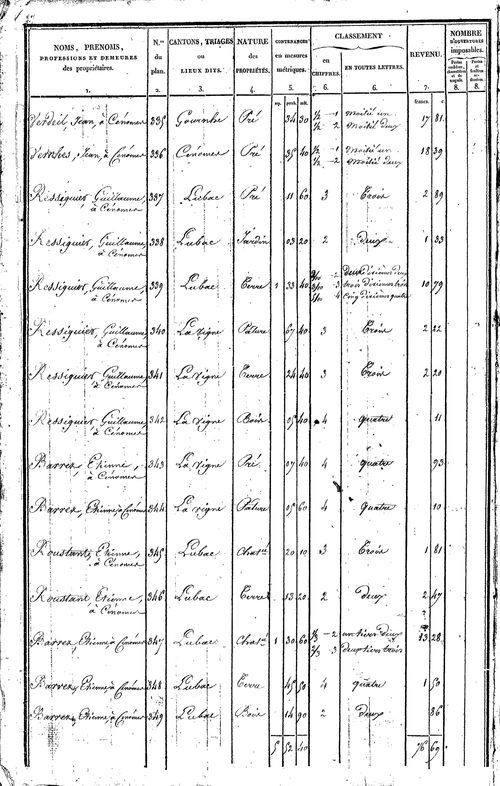 NOMS, PRENOMS,
PROFESSIONS ET DEMEURES
des propriétaires.
N.os
du
plan.
CANTONS, TRIAGES
ou
LIEUX DITS.
NATURE
des
PROPRIÉTÉS.
CONTENANCES
en mesures
métriques.
CLASSEMENT
en
CHIFFRES.
EN TOUTES LETTRES.
REVENU.
NOMBRE
D'OUVERTURES
imposables.
1. 2. 3. 4. 5. 6. 6. 7. 8. 8.
francs. c.
Verdeil, Jean, à Cénomer 335 Pré 34 30 1/2 - 1 moitié un 17 81
1/2 - 2 moitié deux
Vernhes, Jean, à Cénomer 336 Cénomer Pré 35 40 1/2 - 1 moitié un 18 39
1/2 - 2 moitié deux
Ressiguier Guillaume, 337 Lubac Pré 11 60 3 Trois 2 89
à Cénomer
Ressiguier, Guillaume, 338 Lubac Jardin 03 20 2 deux 1 33
à Cénomer
Ressiguier, Guillaume, 339 Lubac Terre 1 33 40 2/10 - 2 deux dixièmes deux 10 79
à Cénomer 3/10 3 trois dixièmes trois
5/10 4 cinq dixièmes quatre
Ressiguier, Guillaume, 340 La Vigne Pâture 67 40 3 Trois 2 22
à Cénomer
Ressiguier, Guillaume, 341 La Vigne Terre 24 40 3 Trois 2 20
à Cénomer
Ressiguier Guillaume, 342 La Vigne Bois 05 40 4 quatre 11
à Cénomer
Barrez, Etienne, 343 La Vigne Pré 07 40 4 quatre 93
à Cénomer
Barrez, Etienne à Cénomer 344 La Vigne Pâture 05 60 4 quatre 10
Roustant, Etienne, 345 Lubac Chat.né 20 10 3 Trois 1 81
à Cénomer
Roustant Etienne, 346 Lubac Terre 13 20 2 deux 2 47
à Cénomer
Barrez, Etienne à Cénomer 347 Lubac Chat.né 1 30 60 1/3 - 2 un tiers deux 13 28
2/3 3 deux tiers trois
Barrez, Etienne, à Cénomer 348 Lubac Terre 45 50 4 quatre 1 50
Barrez, Etienne, à Cénomer 349 Lubac Bois 14 90 2 deux 86
5 52 40 76 69